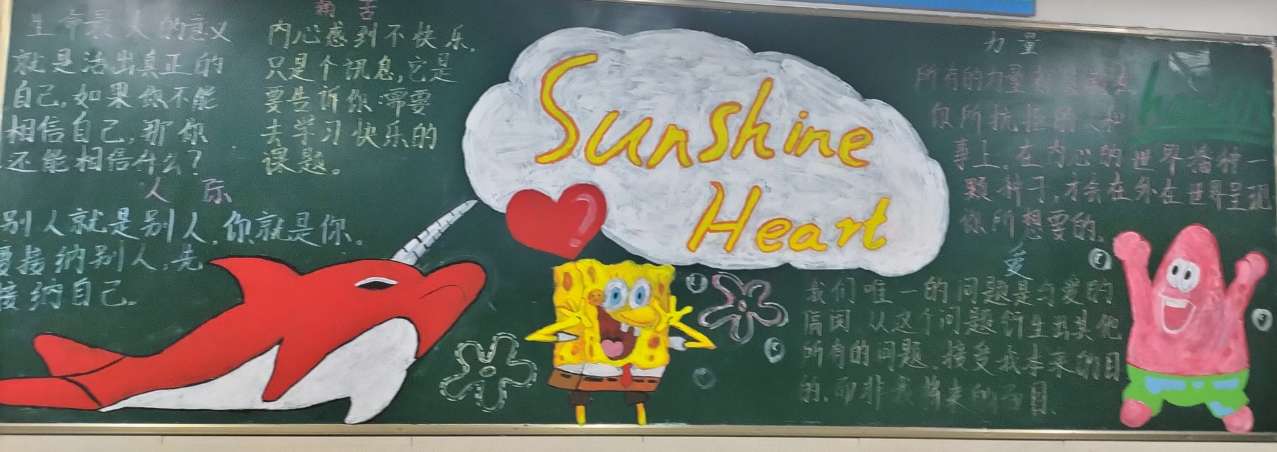 生命最大的意义
就是活出真正的
自己,如果你不能
相信自己,那你
还能相信什么?
人际
别人就是别人,你就是你。
要接纳别人,先
接纳自己。
痛苦
内心感到不快乐,
只是个讯息,它是
要告诉你:需要
去学习快乐的
课题。
Sunshine
Heart
力量
所有的力量
你所抗拒的人和
事上,在内心的世界播种一
颗种子,才会在外在世界呈现
你所想要的。
爱
我们唯一的问题是与爱的
隔阂,从这个问题衍生出其他
所有的问题,接受我本来的面